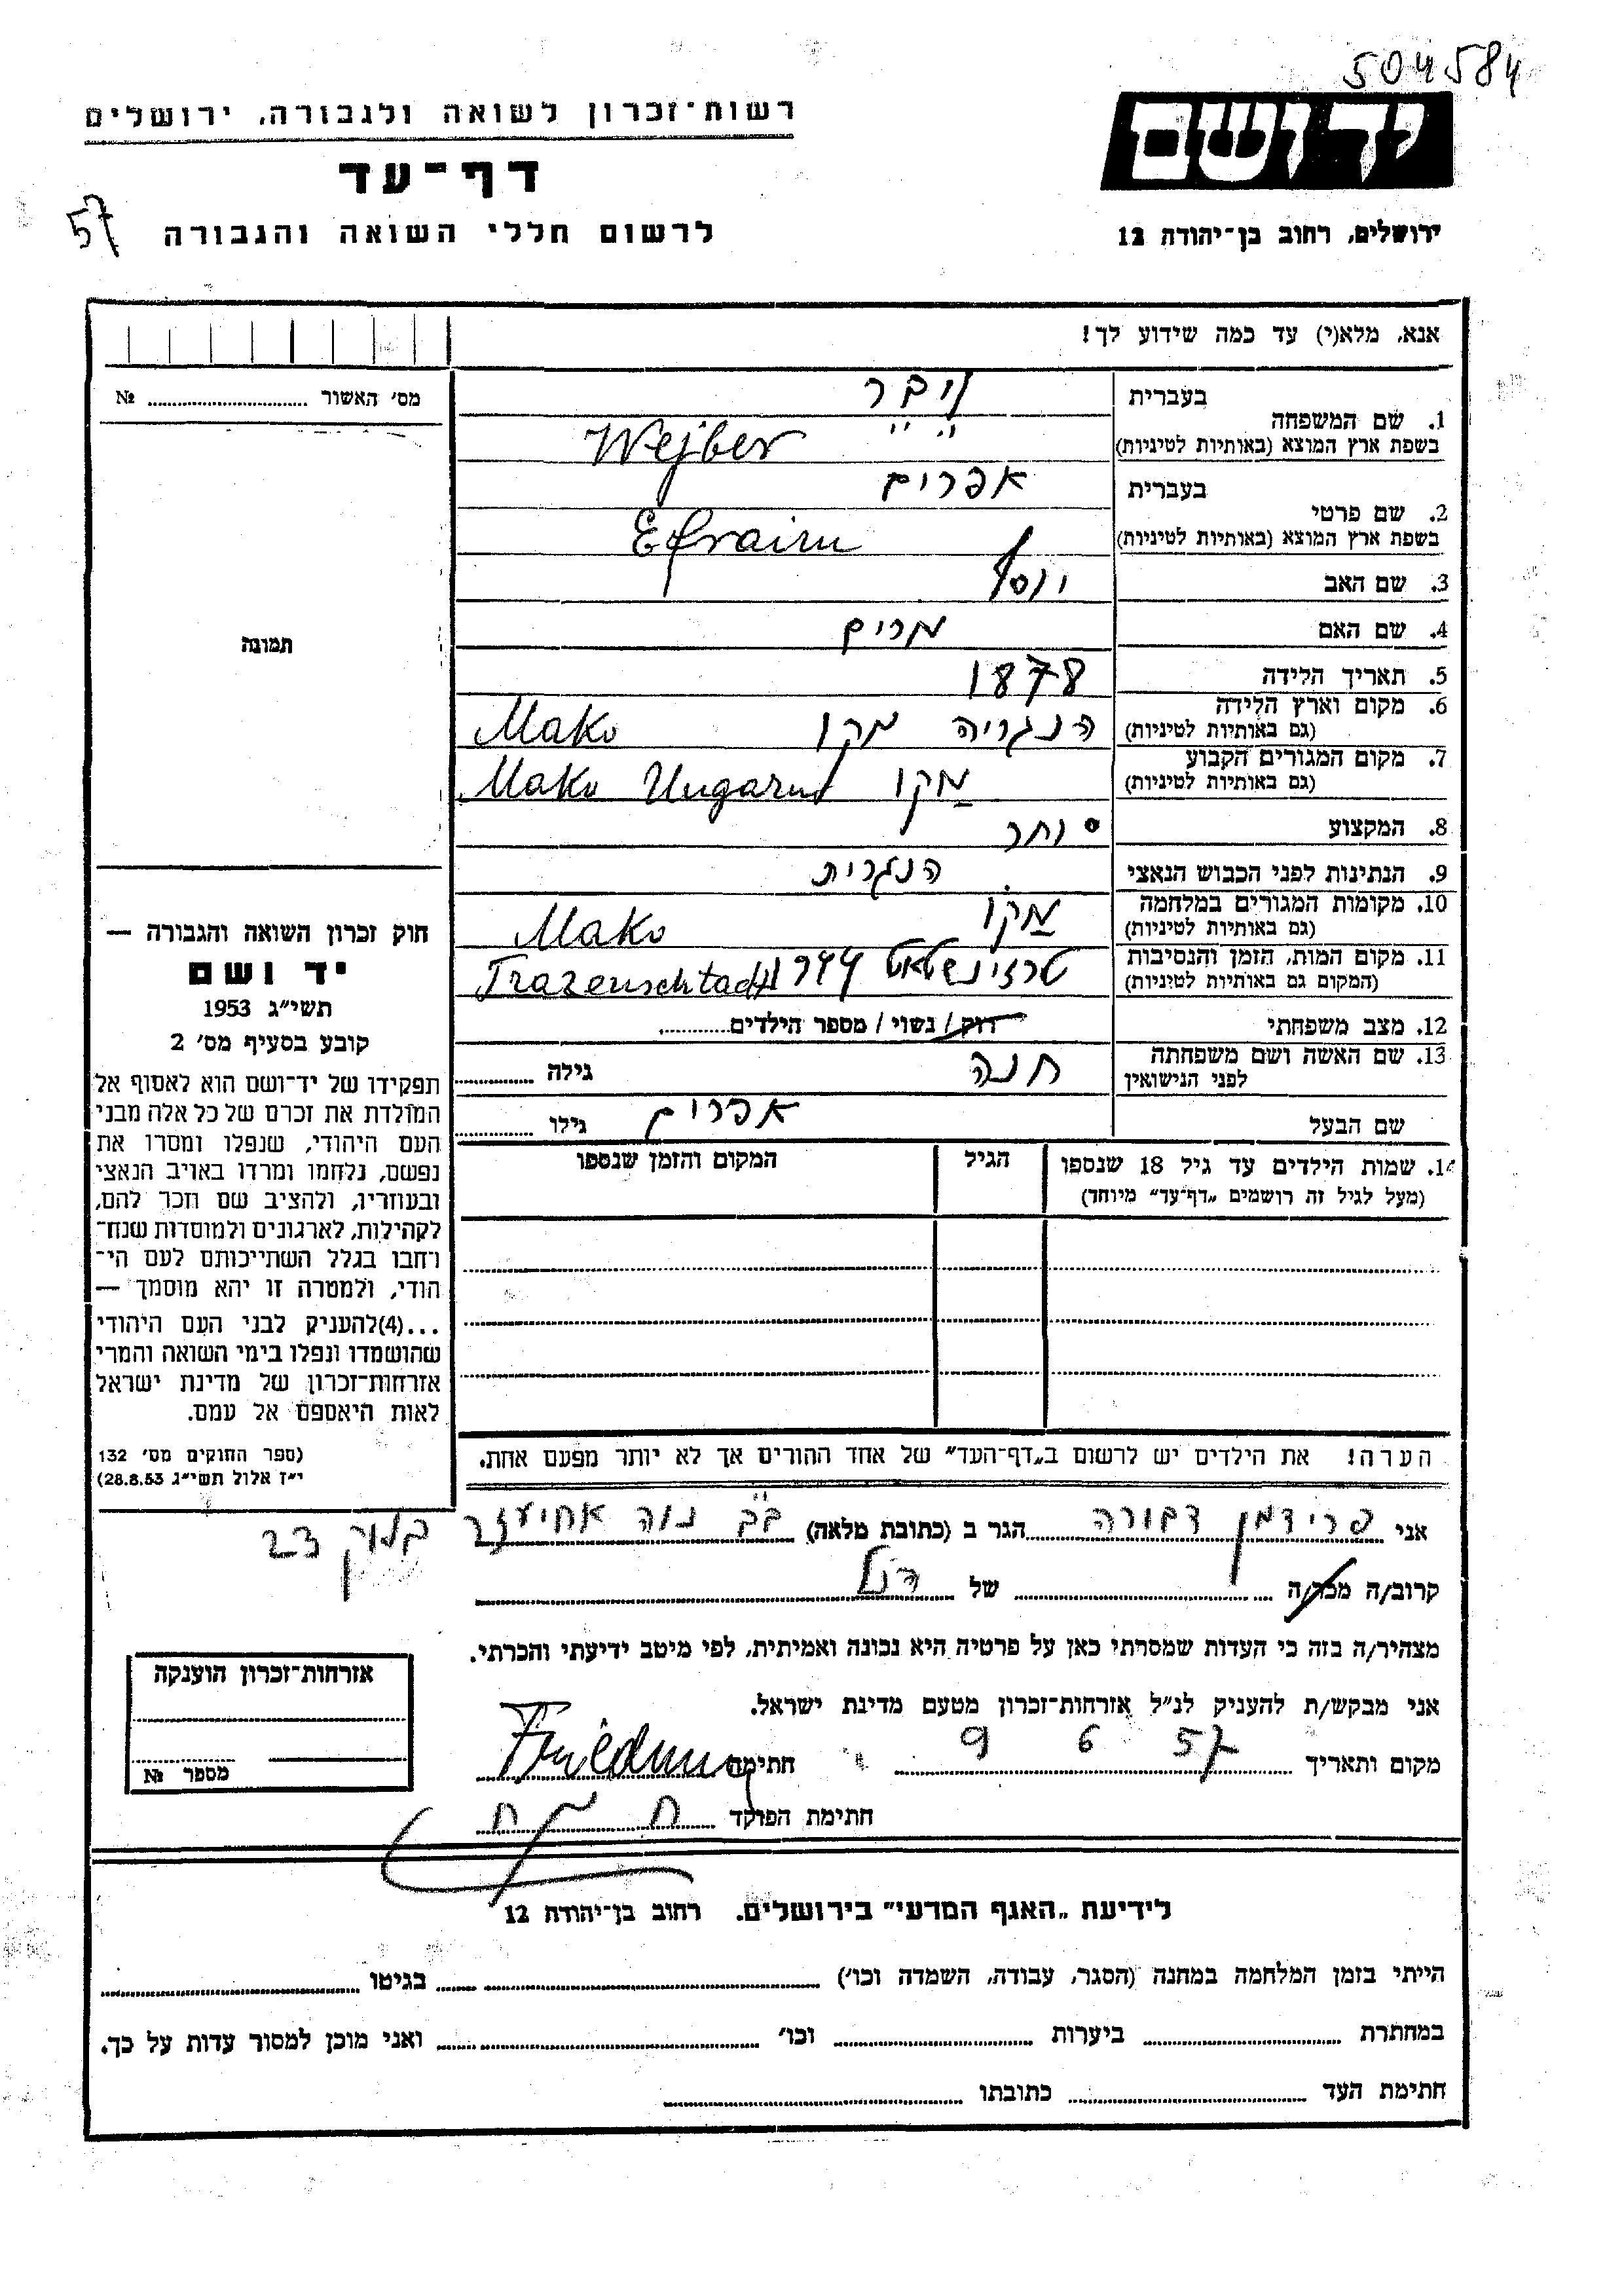 504584
ידושם
ירושלים, רחוב בן־יהודה 12
רשות־זכרון לשואה ולגבורה, ירושלים
דף־עד
לרשום חללי השואה והגבורה
57
אנא, מלא(י) עד כמה שידוע לך!
1. שם המשפחה
בעברית
וייבר
בשפת ארץ המוצא (באותיות לטיניות)
Wejber
2. שם פרטי
בעברית
אפרים
בשפת ארץ המוצא (באותיות לטיניות)
Efraim
3. שם האב
יוסף
4. שם האם
מרים
5. תאריך הלידה
1878
6. מקום וארץ הלידה
(גם באותיות לטיניות)
הנגריה מקו Mako
7. מקום המגורים הקבוע
(גם באותיות לטיניות)
מקו Mako Ungarn
8. המקצוע
סוחר
9. הנתינות לפני הכבוש הנאצי
הנגרית
10. מקומות המגורים במלחמה
(גם באותיות לטיניות)
מקו Mako
11. מקום המות, הזמן והנסיבות
(המקום גם באותיות לטיניות)
טרזינשטאט 1944 Trazenschtadt
12. מצב משפחתי
רוק / נשוי / מספר הילדים
13. שם האשה ושם משפחתה
לפני הנישואין
חנה
גילה
שם הבעל
אפרים
גילו
14. שמות הילדים עד גיל 18 שנספו
(מעל לגיל זה רושמים „דף־עד" מיוחד)
הגיל
המקום והזמן שנספו
הערה! את הילדים יש לרשום ב„דף־העד" של אחד ההורים אך לא יותר מפעם אחת.
מס' האשור № 
תמונה
חוק זכרון השואה והגבורה —
יד ושם
תשי"ג 1953
קובע בסעיף מס' 2
תפקידו של יד־ושם הוא לאסוף אל
המולדת את זכרם של כל אלה מבני
העם היהודי, שנפלו ומסרו את
נפשם, נלחמו ומרדו באויב הנאצי
ובעוזריו, ולהציב שם וזכר להם,
לקהילות, לארגונים ולמוסדות שנח־
רחבו בגלל השתייכותם לעם הי־
הודי, ולמטרה זו יהא מוסמך —
...(4)להעניק לבני העם היהודי
שהושמדו ונפלו בימי השואה והמרי
אזרחות־זכרון של מדינת ישראל
לאות היאספם אל עמם.
(ספר החוקים מס' 132
י"ז אלול תשי"ג 28.8.53)
אני פרידמן דבורה הגר ב (כתובת מלאה) ב"ב נוה אחיעזר בלוק 23
קרוב/ה מכר/ה של הנ"ל
מצהיר/ה בזה כי העדות שמסרתי כאן על פרטיה היא נכונה ואמיתית, לפי מיטב ידיעתי והכרתי.
אני מבקש/ת להעניק לנ"ל אזרחות־זכרון מטעם מדינת ישראל.
מקום ותאריך 9 6 57 חתימה Friedman
חתימת הפוקד
אזרחות־זכרון הוענקה
מספר №
לידיעת „האגף המדעי" בירושלים, רחוב בן־יהודה 12
הייתי בזמן המלחמה במחנה (הסגר, עבודה, השמדה וכו') בגיטו
במחתרת ביערות וכו' ואני מוכן למסור עדות על כך.
חתימת העד כתובתו